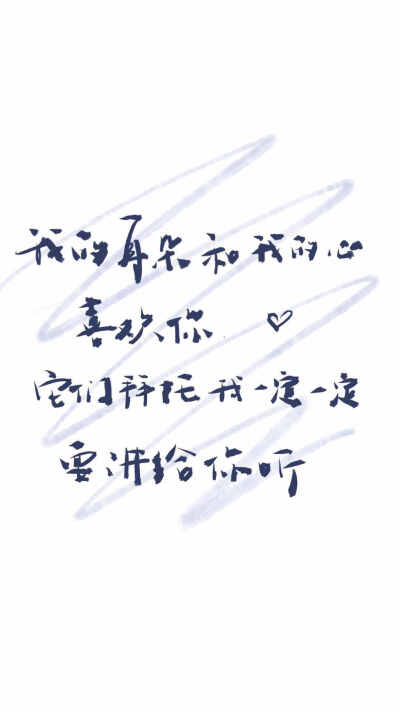 我的耳朵和我的心
喜欢你 ♡
它们拜托我一定一定
要讲给你听